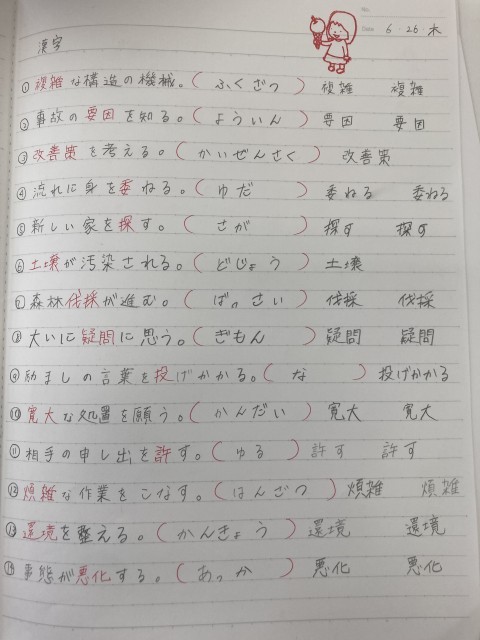 6・26・木
漢字
①複雑な構造の機械。(ふくざつ) 複雑 複雑
②事故の要因を知る。(よういん) 要因 要因
③改善策を考える。(かいぜんさく) 改善策
④流れに身を委ねる。(ゆだ) 委ねる 委ねる
⑤新しい家を探す。(さが) 探す 探す
⑥土壌が汚染される。(どじょう) 土壌
⑦森林伐採が進む。(ばっさい) 伐採 伐採
⑧大いに疑問に思う。(ぎもん) 疑問 疑問
⑨励ましの言葉を投げかかる。(な) 投げかかる
⑩寛大な処置を願う。(かんだい) 寛大 寛大
⑪相手の申し出を許す。(ゆる) 許す 許す
⑫煩雑な作業をこなす。(はんざつ) 煩雑 煩雑
⑬環境を整える。(かんきょう) 環境 環境
⑭事態が悪化する。(あっか) 悪化 悪化